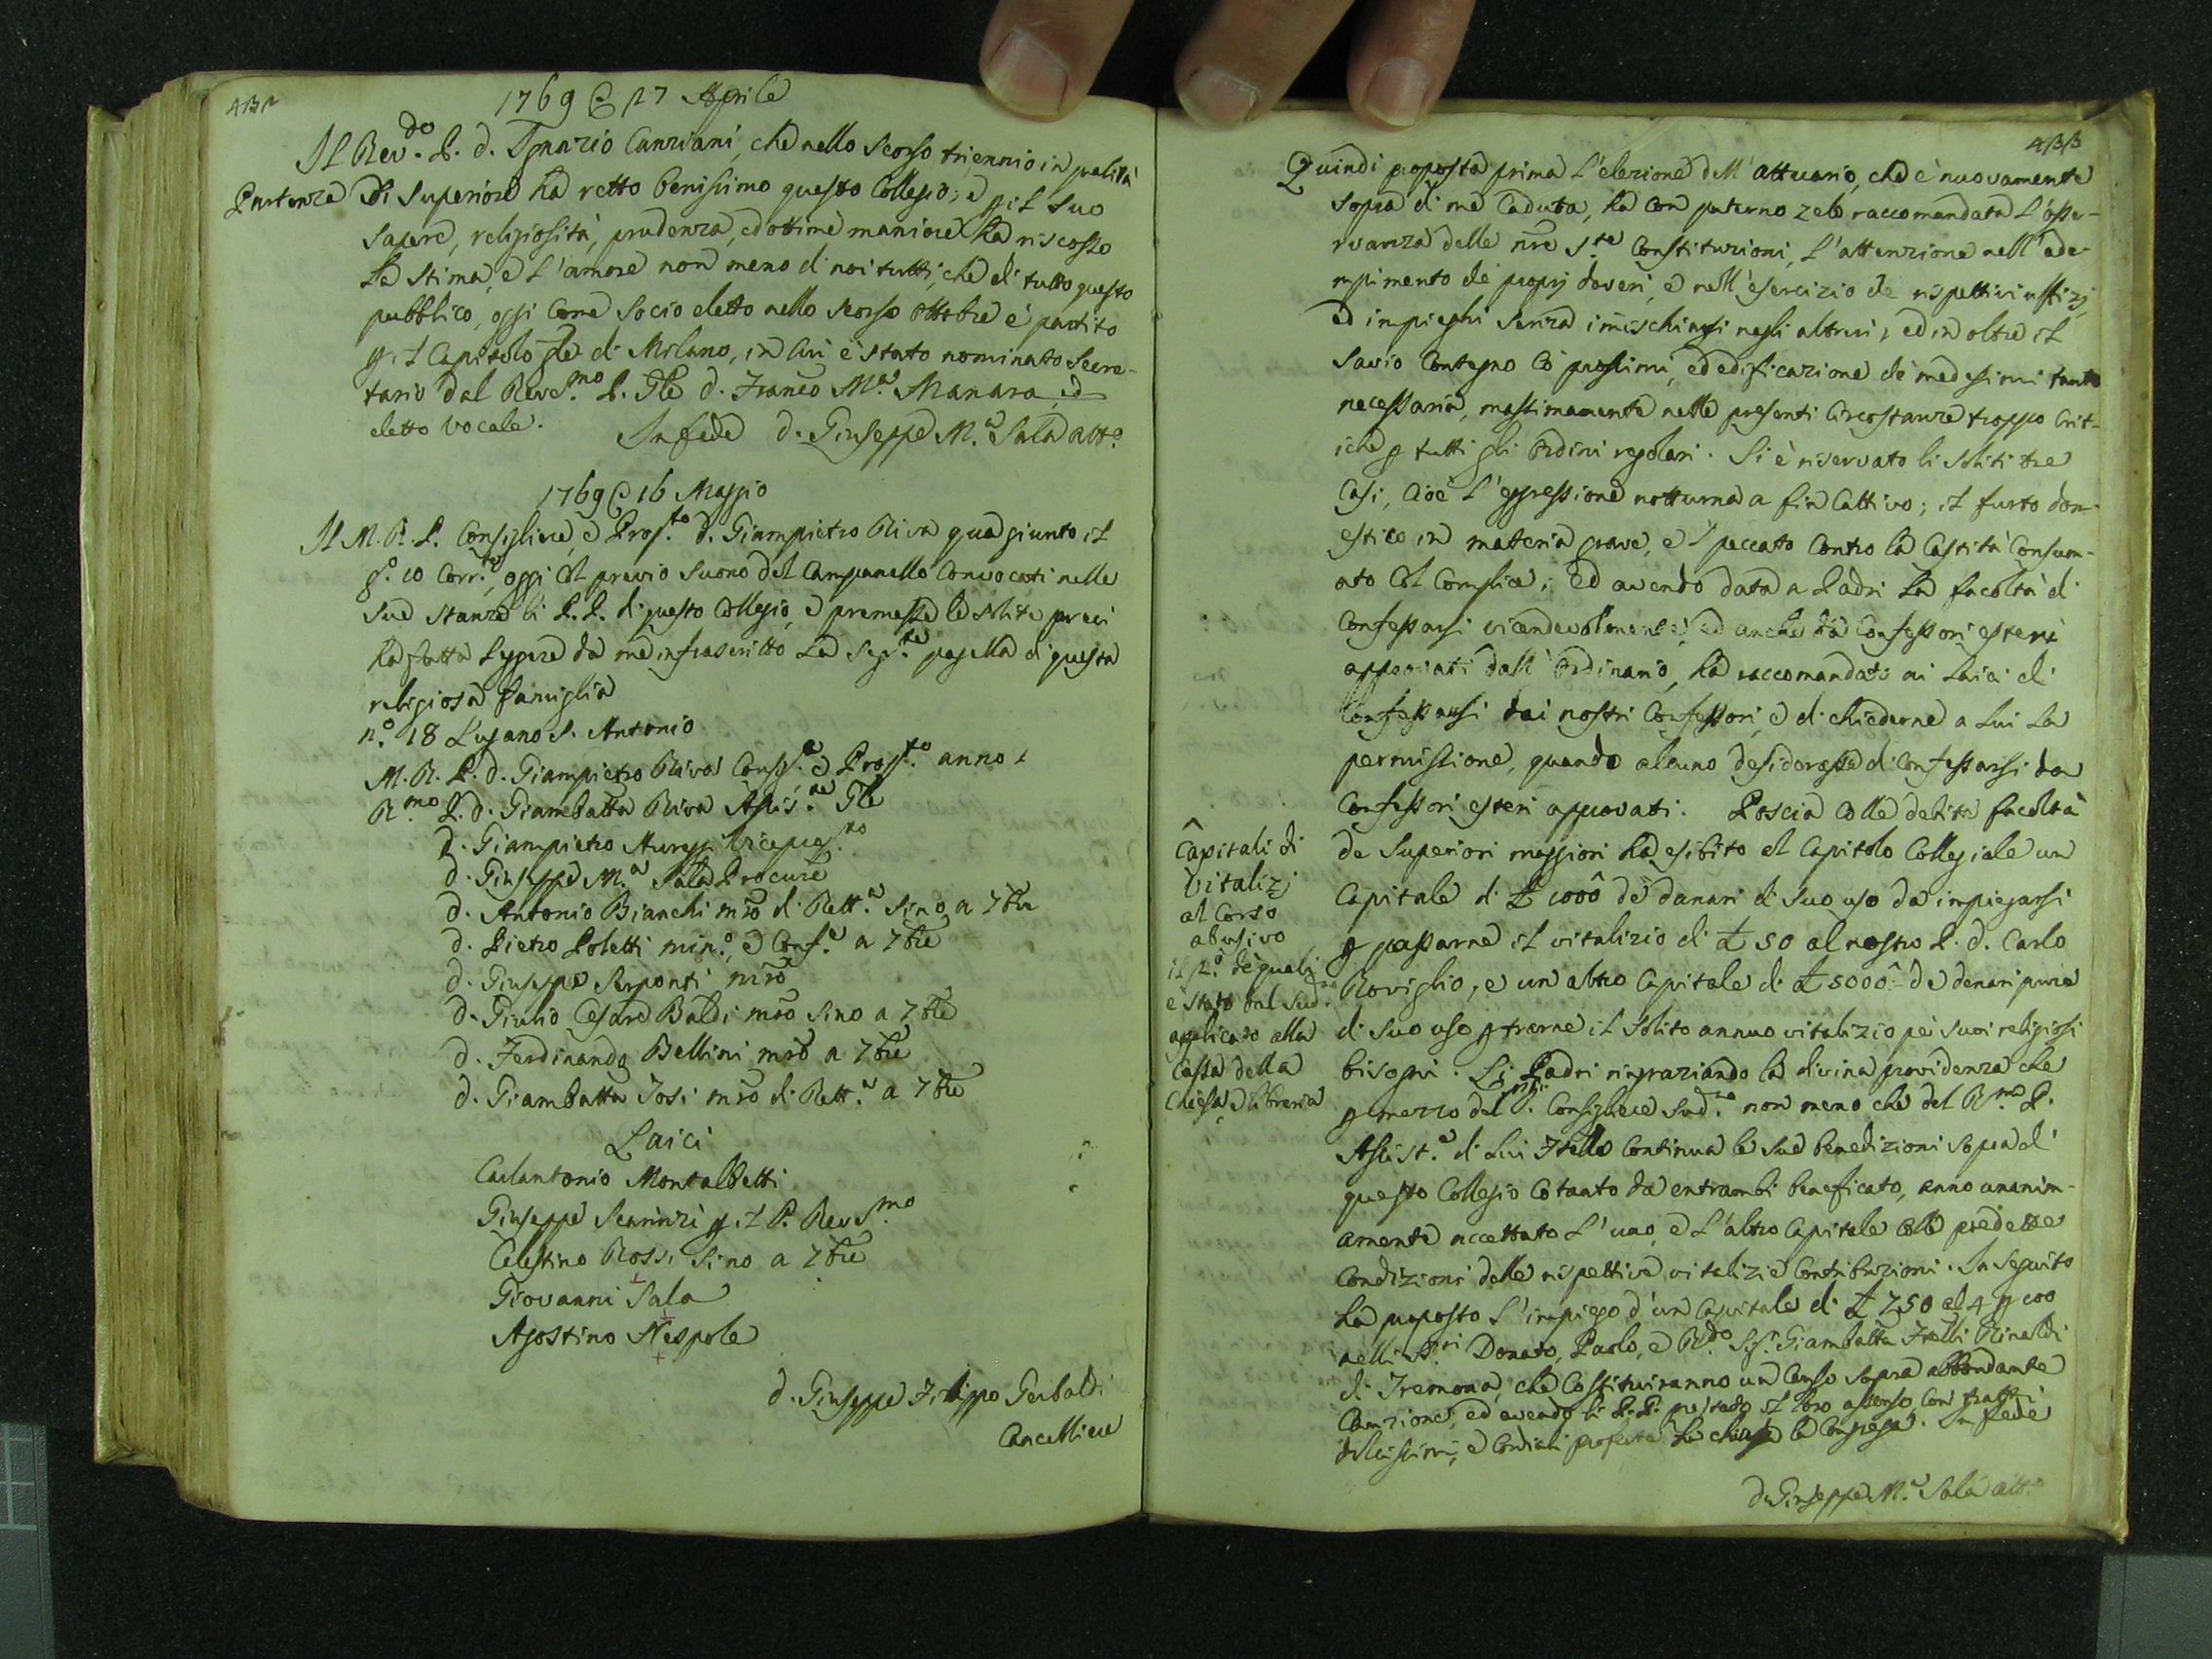 432
1769 @ 27 Aprile
Il Rev.do P. d. Ignazio Canziani, che nello scorso triennio in qualità
Partenza
di Superiore ha retto benissimo questo Collegio; e p il suo
sapere, religiosità, prudenza, ed ottime maniere ha riscosso
la stima, e l'amore non meno di noi tutti, che di tutto questo
pubblico, oggi come socio eletto nello scorso ottobre è partito
p il Capitolo Gle di Milano, in cui è stato nominato Secre-
tario dal Revs.mo P. Gle d. Franco M.a Manara, ed
eletto vocale.
In fede d. Giuseppe M.a Sala att.o
1769 @ 16 Maggio
Il M. R. P. Consigliere, e Prop.to d. Giampietro Riva qua giunto il
g.o 10 Corr.te, oggi col previo suono del Campanello Convocati nelle
sue stanze li P.P. di questo Collegio, e premesse le solite preci
ha fatta leggere da me infrascritto la seg.te pagella di questa
religiosa famiglia
n.o 18 Lugano S. Antonio
M. R. P. d. Giampietro Riva Consig.e e Prop.to anno 1
R.mo P. d. Giambatta Riva Assis.te Gle
d. Giampietro Viceprep.to
d. Giuseppe M.a Sala Procure
d. Antonio Bianchi mro di Rett.a sino a 7bre
d. Pietro Poletti min.o, e Conf.e a 7bre
d. Giuseppe Serponti mro
d. Giulio Cesare Baldi mro sino a 7bre
d. Ferdinando Bellini mro a 7bre
d. Giambatta Josi mro di Rett.a a 7bre
Laici
Carlantonio Montalbetti
Giuseppe p il P. Revs.mo
Celestino Rossi sino a 7bre
Giovanni Sala
Agostino Nespole
d. Giuseppe Filippo Gerbaldi
Cancelliere
433
Quindi proposta prima l'elezione dell'attuario, che è nuovamente
sopra di me caduta, ha con paterno zelo raccomandata l'osse-
rvanza delle nre S.te Constituzioni, l'attenzione nell'ade-
mpimento de proprj doveri, e nell'esercizio de rispettivi uffizj,
ed impieghi senza immischiarsi negli altrui, ed in oltre il
savio contegno co' prossimi, ed edificazione de' medesimi tanto
necessaria, massimamente nelle presenti circostanze troppo crit-
iche p tutti gli ordini regolari. Si è riservato li soliti tre
casi, cioè l'egressione notturna a fin cattivo; il furto dom-
estico in materia grave, e 'l peccato contro la castità consum-
ato col complice; ed avendo data a Padri la facoltà di
confessarsi vicendevolmente, ed anche da Confessori esteri
approvati dall'Ordinario, ha raccomandato ai Laici di
confessarsi dai nostri Confessori, e di chiederne a lui la
permissione, quando alcuno desiderasse di confessarsi da
Confessori esteri approvati. Poscia colle debite facoltà
de Superiori maggiori ha esibito al Capitolo Collegiale un
Capitale di £ 1000 de danari di suo uso da impiegarsi
p passarne il vitalizio di £ 50 al nostro P. d. Carlo
Roviglio, e un altro Capitale di £ 5000 de denari pure
di suo uso p trarne il solito annuo vitalizio pei suoi religiosi
bisogni. Li Padri ringraziando la divina providenza che
p mezzo del P. Consigliere sud.to non meno che del R.mo P.
Assist.e di lui Fratello continua le sue benedizioni sopra di
questo Collegio cotanto da entrambi beneficato, anno unanim-
amente accettato l'uno, e l'altro Capitale colle predette
condizioni delle rispettive vitalizie contribuzioni. In seguito
ha proposto l'impiego d'un Capitale di £ 750 al 4 p 100
nelli SS.ri Donato, Paolo, e R.do Sig.r Giambatta Fratelli Rinaldi
di Tremona, che costituiranno un Censo sopra abbondante
Cauzione, ed avendo li P.P. prestato il loro assenso, con
dolcissimi, e cordiali ha chiusa la Congrega. In fede
d. Giuseppe M.a Sala att.o
Capitali di
vitalizj
al Corso
abusivo
il 2.o de quali
è stato dal sud.o
applicato alla
Cassa della
Chiesa, e libreria